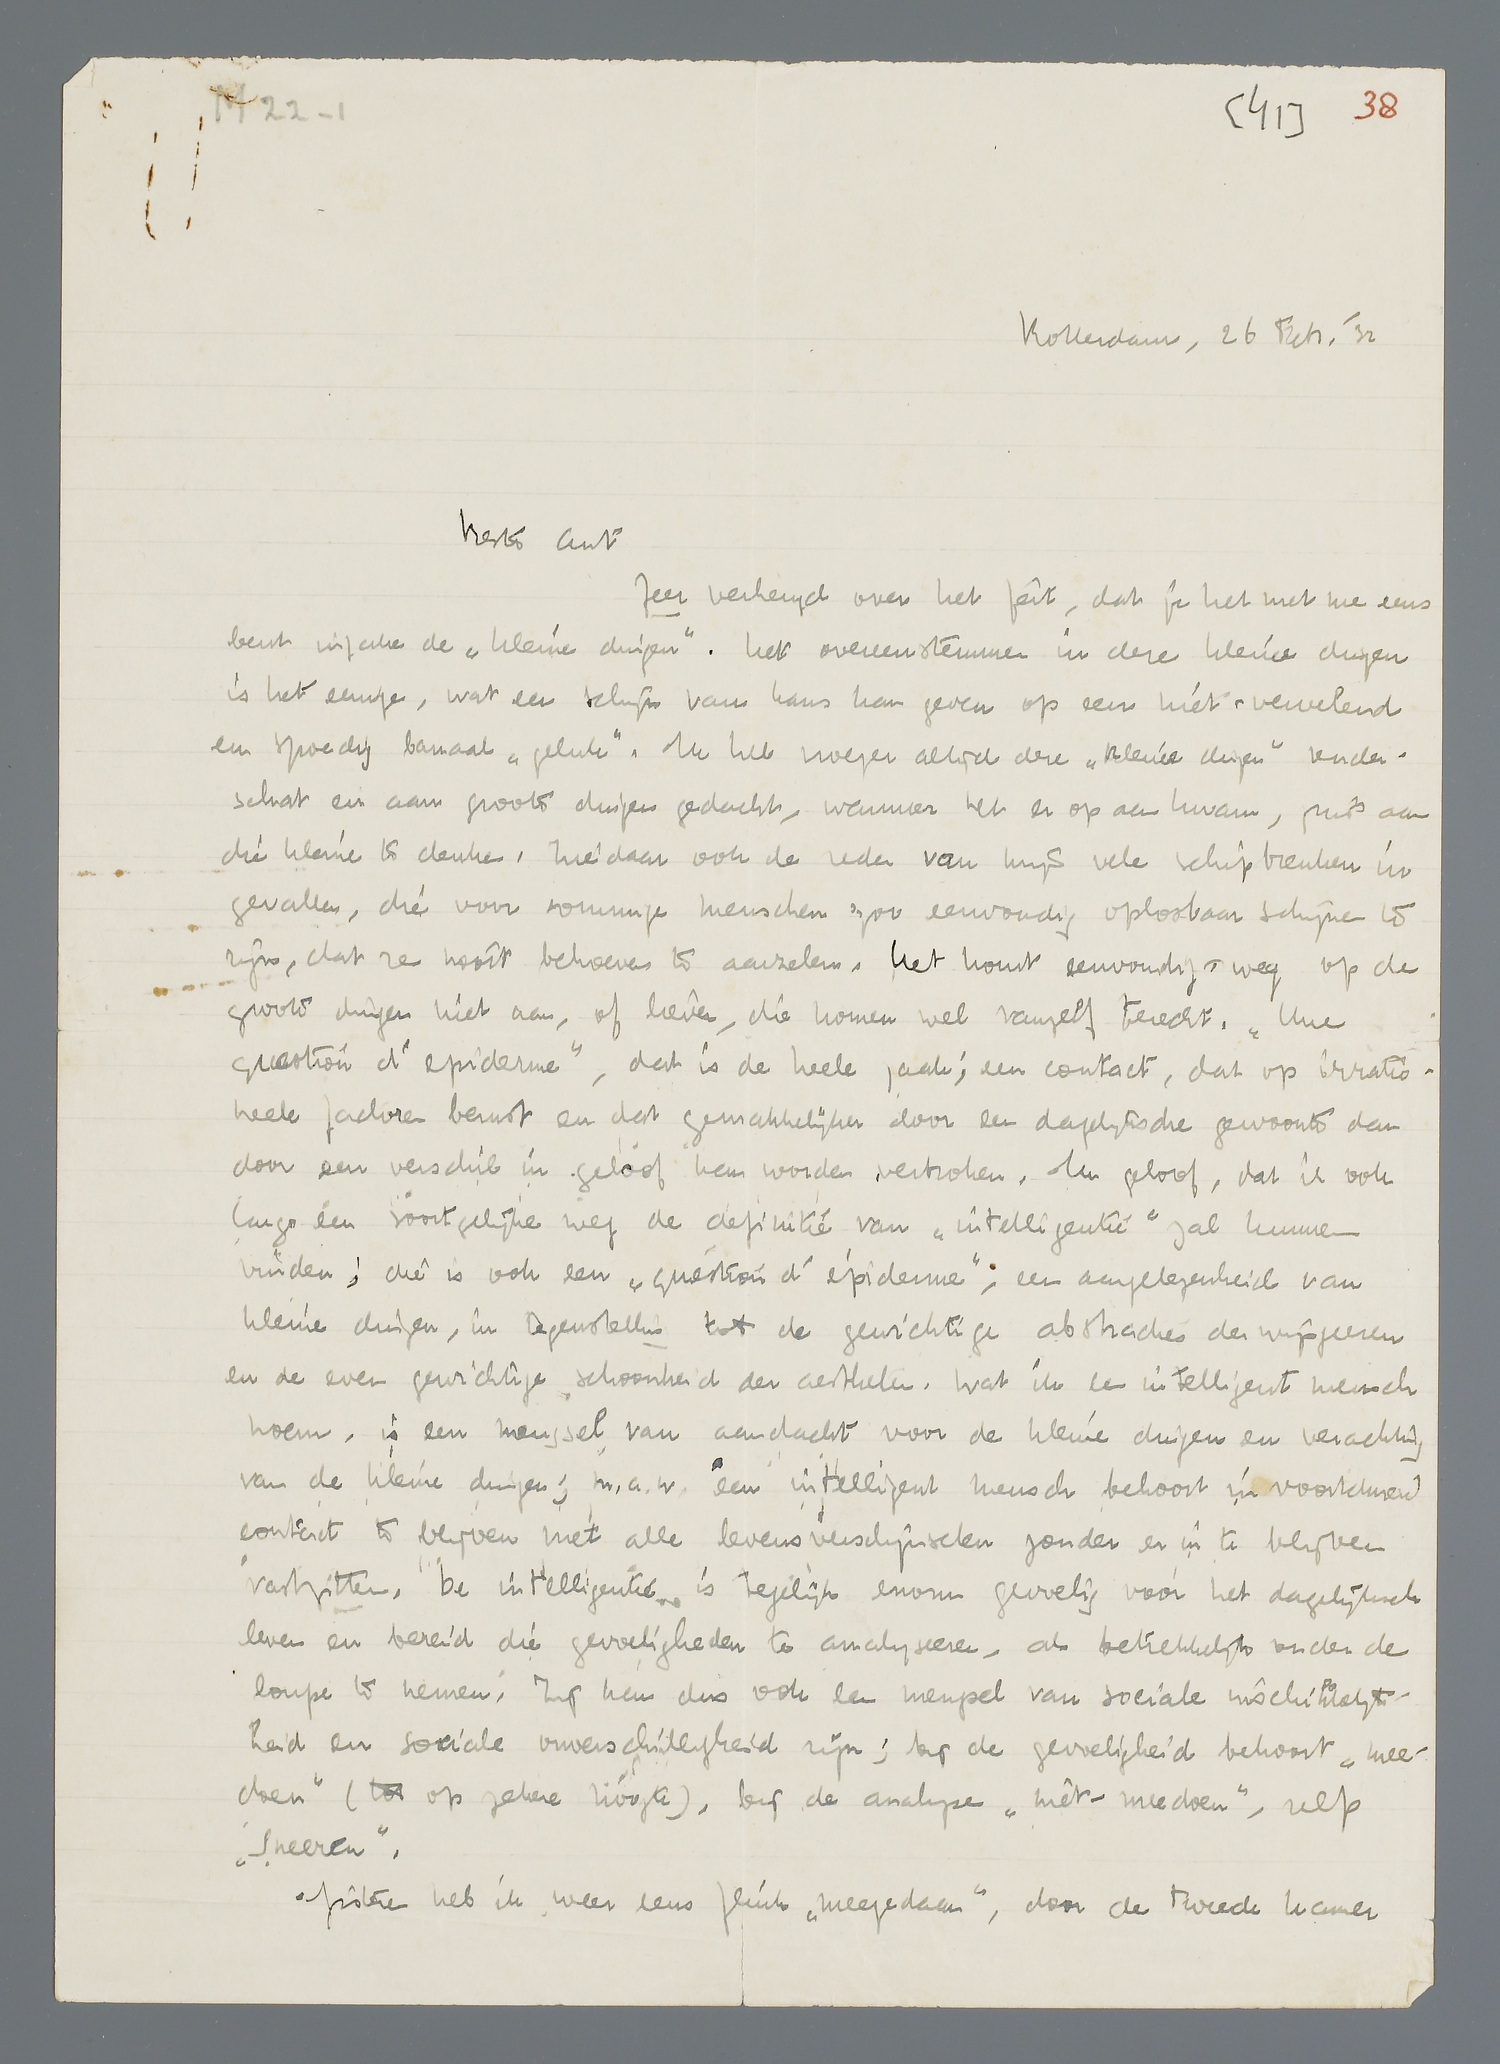 M 22-1
[41] 38
Rotterdam, 26 Febr. '32
Beste Ant
Zeer verheugd over het feit, dat je het met me eens
bent inzake de „kleine dingen". Het overeenstemmen in deze kleine dingen
is het eenige, wat een schijn van kans kan geven op een niet-vervelend
en spoedig banaal „geluk". Ik heb vroeger altijd deze „kleine dingen" onder-
schat en aan groote dingen gedacht, wanneer het er op aan kwam, juist aan
die kleine te denken. Hier daar ook de reden van mijn vele schipbreuken in
gevallen, die voor sommige menschen zoo eenvoudig oplosbaar schijnen te
zijn, dat ze nooit behoeven te aarzelen. Het komt eenvoudig-weg op de
groote dingen niet aan, of liever, die komen wel vanzelf terecht. „Une
question d'épiderme", dat is de heele zaak; een contact, dat op irratio-
neele factoren berust en dat gemakkelijker door een dagelijksche gewoonte dan
door een verschil in geloof kan worden verbroken. Ik geloof, dat ik ook
langs een soortgelijke weg de definitie van „intelligentie" zal kunnen
vinden; die is ook een „question d'épiderme", een aangelegenheid van
kleine dingen, in tegenstelling tot de gewichtige abstracties der wijsgeeren
en de even gewichtige schoonheid der aestheten. Wat ik een intelligent mensch
noem, is een mengsel van aandacht voor de kleine dingen en verachting
van de kleine dingen; m.a.w. een intelligent mensch behoort in voortdurend
contact te blijven met alle levensverschijnselen zonder er in te blijven
vastzitten. De intelligentie is tegelijk enorm gevoelig voor het dagelijksch
leven en bereid die gevoeligheden te analyseeren, als betrekkelijk onder de
loupe te nemen. Zij kan dus ook een mengsel van sociale inschikkelijk-
heid en sociale onverschilligheid zijn; bij de gevoeligheid behoort „mee-
doen" (tot op zekere hoogte), bij de analyse „niet-meedoen", zelfs
„sneeren".
Gisteren heb ik weer eens flink „meegedaan", door de Tweede Kamer